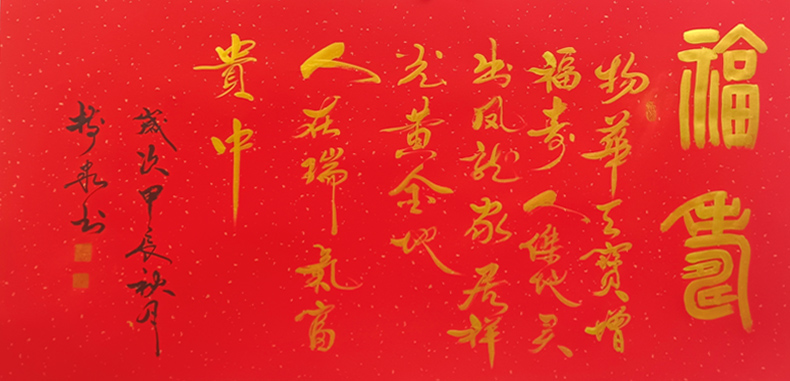 福寿
物華天寶增
福寿人傑地灵
出凤龙家居祥
光黄金地
人在瑞氣富
貴中
歲次甲辰秋月
书